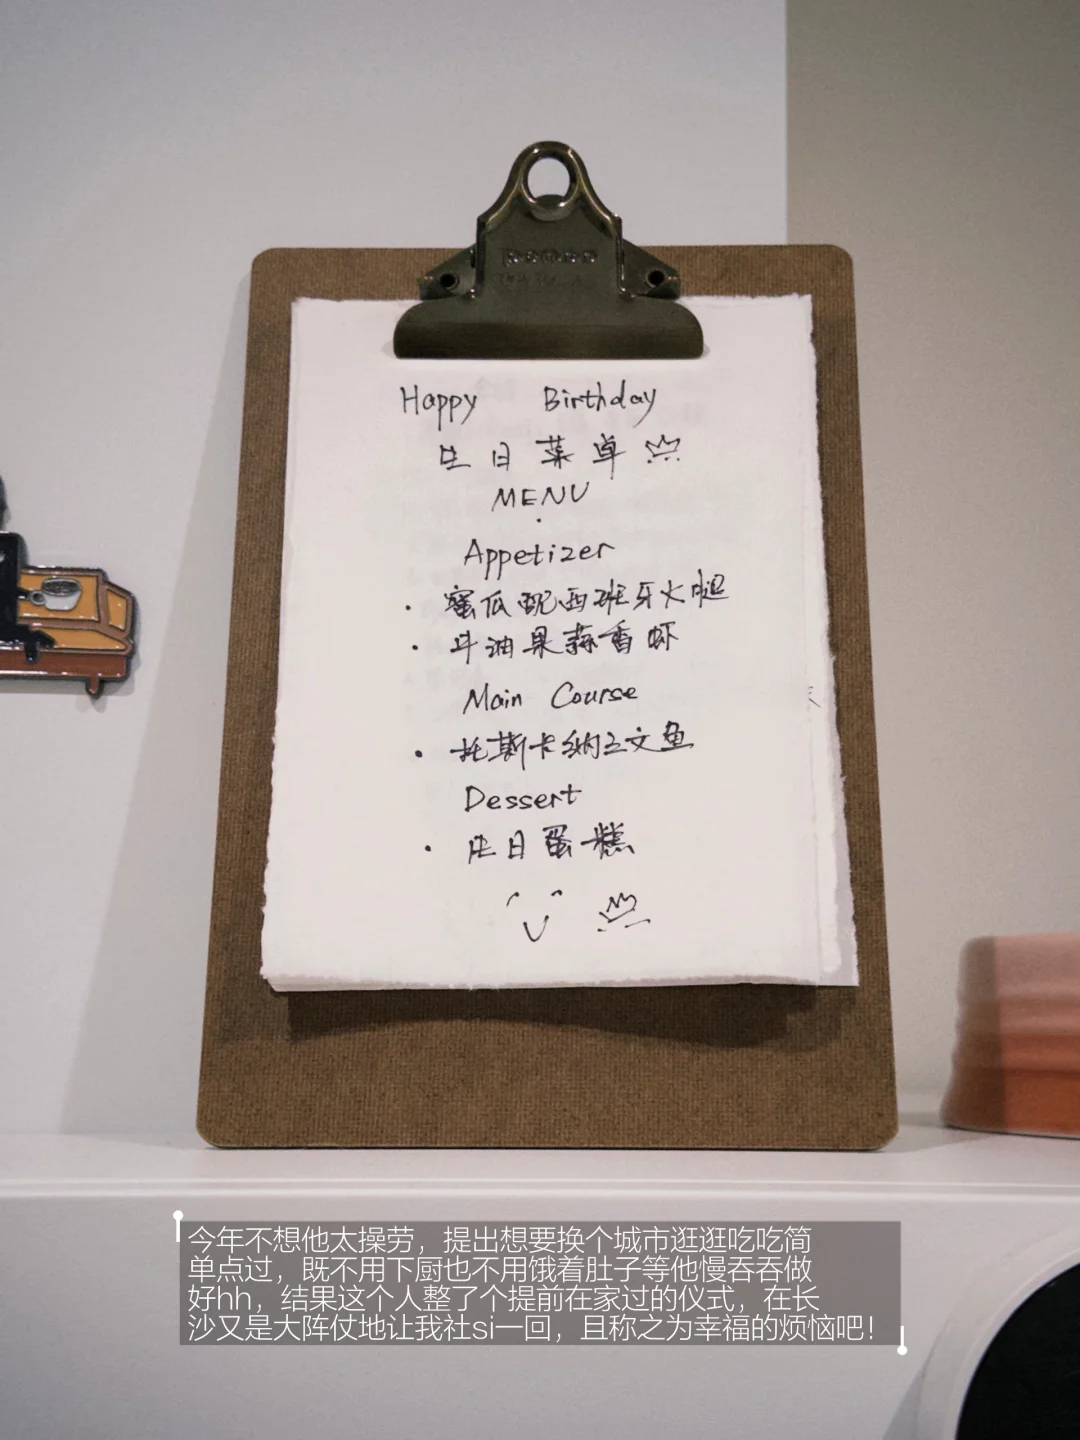 Happy Birthday
生日菜单
MENU
Appetizer
· 蜜瓜配西班牙火腿
· 牛油果蒜香虾
Main Course
· 托斯卡纳三文鱼
Dessert
· 生日蛋糕
今年不想他太操劳，提出想要换个城市逛逛吃吃简
单点过，既不用下厨也不用饿着肚子等他慢吞吞做
好hh，结果这个人整了个提前在家过的仪式，在长
沙又是大阵仗地让我社si一回，且称之为幸福的烦恼吧！